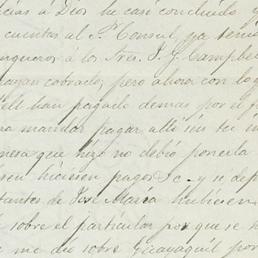 cias á Dios he casi concluido y
cuentas al Sr. Consul, ya
á los Sres. J. G. Campbe
cobrado, pero ahora con
han pagado demas por el
mandar pagar alli sin
que hizo no debio ponerla
hiciesen pagos &c. y se dep
de José Maria hubiesen
sobre el particular por que se h
me dio sobre Guayaquil por